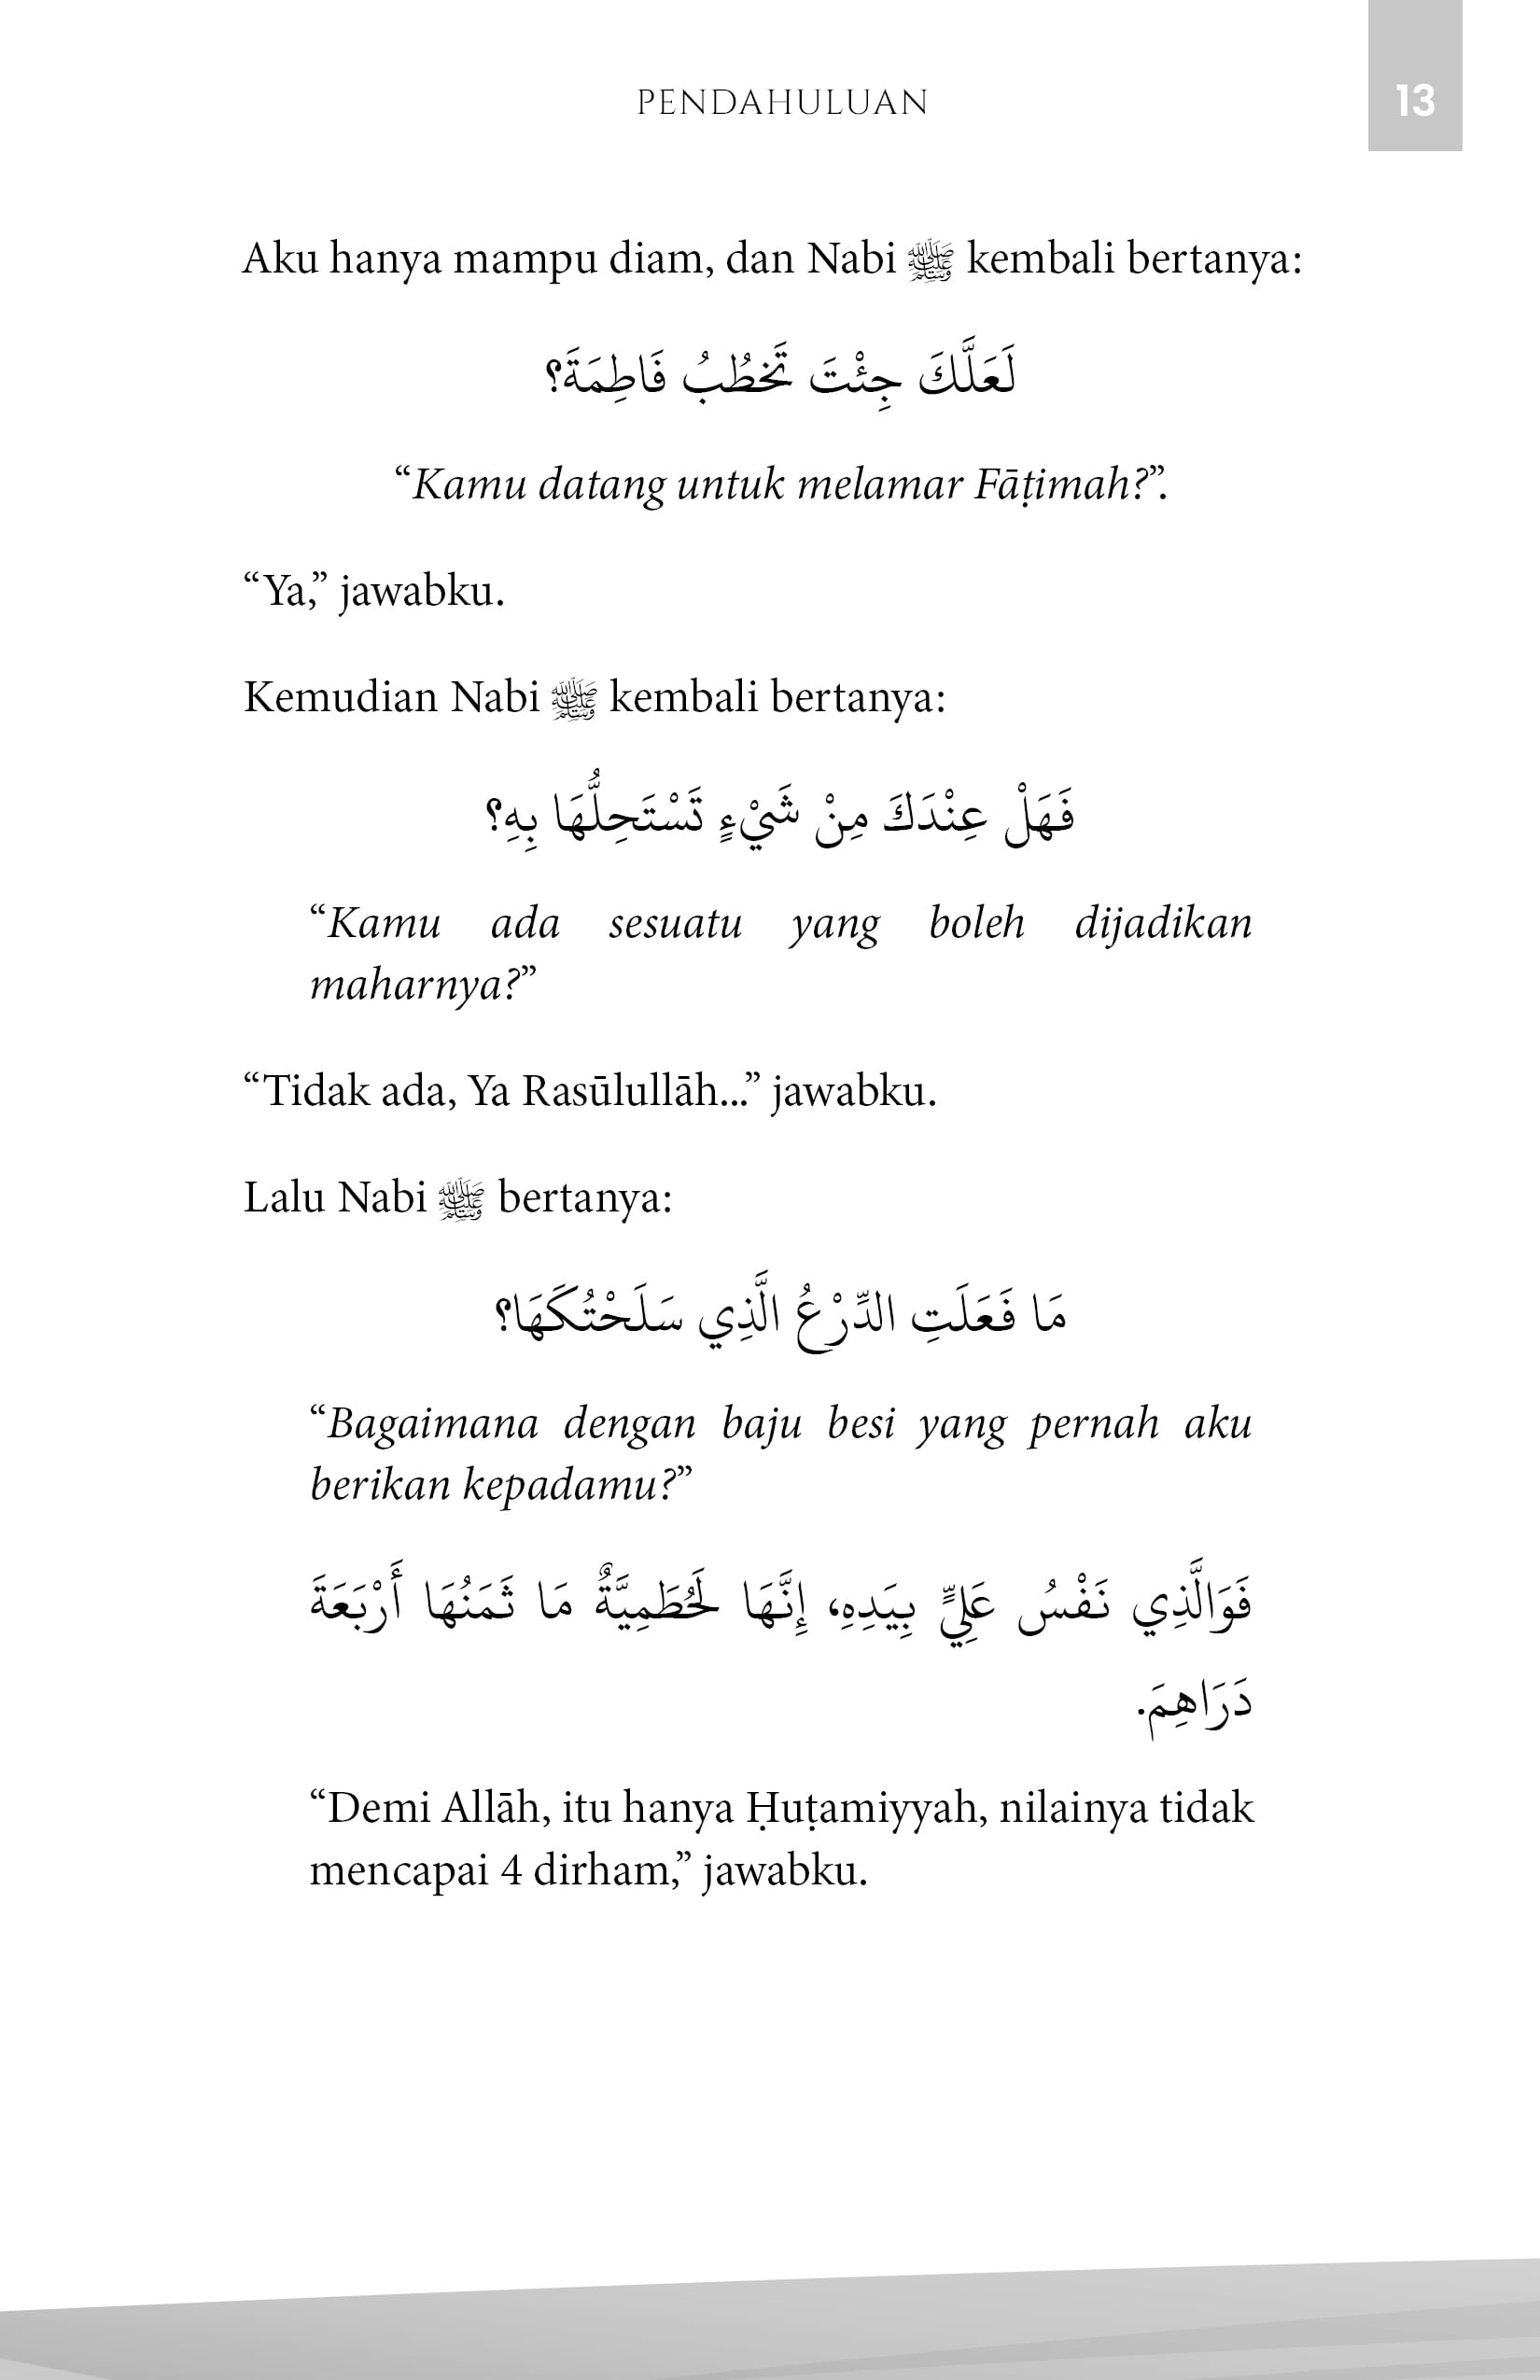 PENDAHULUAN
13
Aku hanya mampu diam, dan Nabi ﷺ kembali bertanya:
لَعَلَّكَ جِئْتَ تَخْطُبُ فَاطِمَةَ؟
“Kamu datang untuk melamar Fāṭimah?”.
“Ya,” jawabku.
Kemudian Nabi ﷺ kembali bertanya:
فَهَلْ عِنْدَكَ مِنْ شَيْءٍ تَسْتَحِلُّهَا بِهِ؟
“Kamu ada sesuatu yang boleh dijadikan
maharnya?”
“Tidak ada, Ya Rasūlullāh...” jawabku.
Lalu Nabi ﷺ bertanya:
مَا فَعَلَتِ الدِّرْعُ الَّذِي سَلَحْتُكَهَا؟
“Bagaimana dengan baju besi yang pernah aku
berikan kepadamu?”
فَوَالَّذِي نَفْسُ عَلِيٍّ بِيَدِهِ، إِنَّهَا لَحُطَمِيَّةٌ مَا ثَمَنُهَا أَرْبَعَةَ
دَرَاهِمَ.
“Demi Allāh, itu hanya Ḥuṭamiyyah, nilainya tidak
mencapai 4 dirham,” jawabku.